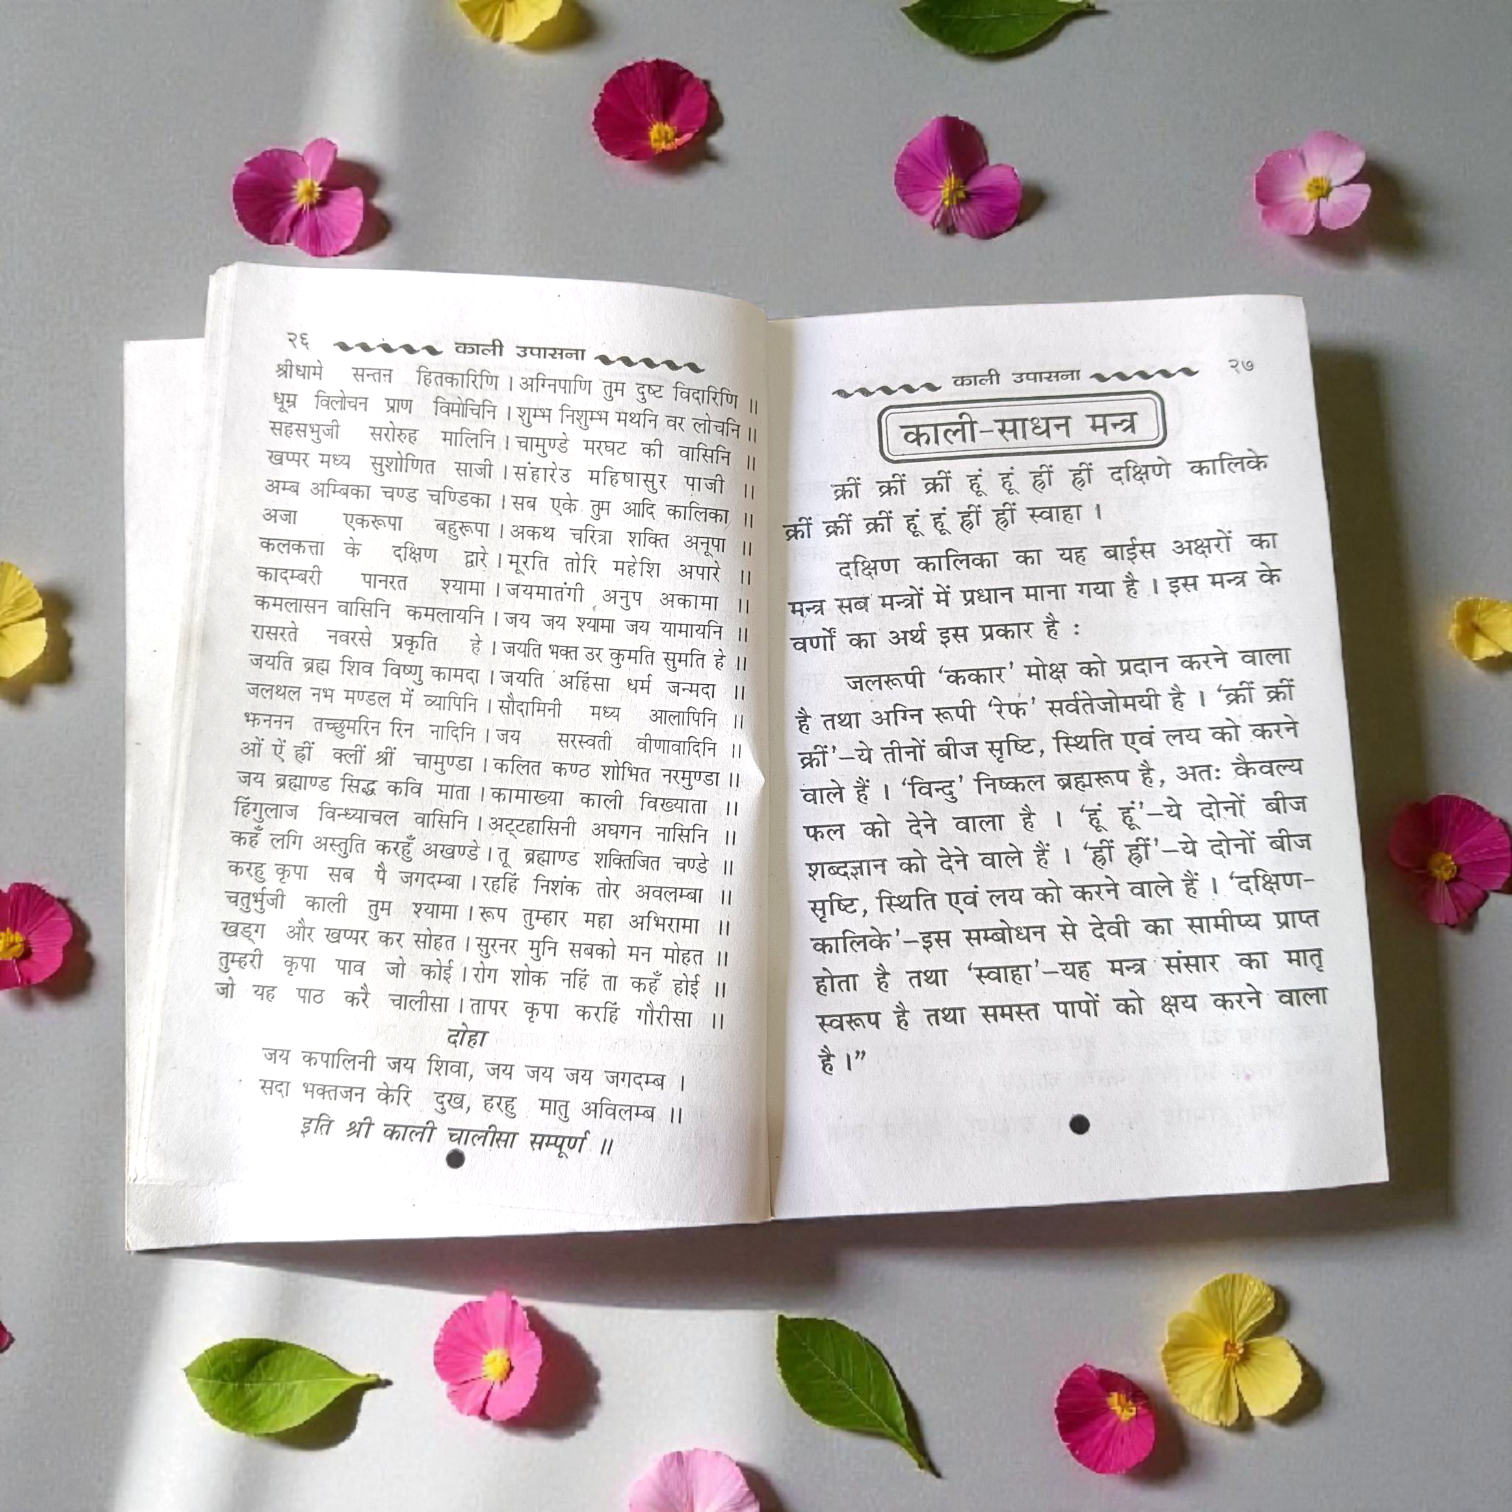 २६ काली उपासना
श्रीधामे सन्तन हितकारिणि । अग्निपाणि तुम दुष्ट विदारिणि ॥
धूम्र विलोचन प्राण विमोचिनि । शुम्भ निशुम्भ मथनि वर लोचनि ॥
सहसभुजी सरोरुह मालिनि । चामुण्डे मरघट की वासिनि ॥
खप्पर मध्य सुशोणित साजी । संहारेउ महिषासुर पाजी ॥
अम्ब अम्बिका चण्ड चण्डिका । सब एके तुम आदि कालिका ॥
अजा एकरूपा बहुरूपा । अकथ चरित्रा शक्ति अनूपा ॥
कलकत्ता के दक्षिण द्वारे । मूरति तोरि महेशि अपारे ॥
कादम्बरी पानरत श्यामा । जयमातंगी अनुप अकामा ॥
कमलासन वासिनि कमलायनि । जय जय श्यामा जय यामायनि ॥
रासरते नवरसे प्रकृति हे । जयति भक्त उर कुमति सुमति हे ॥
जयति ब्रह्म शिव विष्णु कामदा । जयति अहिंसा धर्म जन्मदा ॥
जलथल नभ मण्डल में व्यापिनि । सौदामिनी मध्य आलापिनि ॥
झननन तच्छुमरिन रिन नादिनि । जय सरस्वती वीणावादिनि ॥
ओं ऐं ह्रीं क्लीं श्रीं चामुण्डा । कलित कण्ठ शोभित नरमुण्डा ॥
जय ब्रह्माण्ड सिद्ध कवि माता । कामाख्या काली विख्याता ॥
हिंगुलाज विन्ध्याचल वासिनि । अट्टहासिनी अघगन नासिनि ॥
कहँ लगि अस्तुति करहुँ अखण्डे । तू ब्रह्माण्ड शक्तिजित चण्डे ॥
करहु कृपा सब पै जगदम्बा । रहहिं निशंक तोर अवलम्बा ॥
चतुर्भुजी काली तुम श्यामा । रूप तुम्हार महा अभिरामा ॥
खड्ग और खप्पर कर सोहत । सुरनर मुनि सबको मन मोहत ॥
तुम्हरी कृपा पाव जो कोई । रोग शोक नहिं ता कहँ होई ॥
जो यह पाठ करै चालीसा । तापर कृपा करहिं गौरीसा ॥
दोहा
जय कपालिनी जय शिवा, जय जय जय जगदम्ब ।
सदा भक्तजन केरि दुख, हरहु मातु अविलम्ब ॥
इति श्री काली चालीसा सम्पूर्ण ॥
काली उपासना २७
काली-साधन मन्त्र
क्रीं क्रीं क्रीं हूं हूं ह्रीं ह्रीं दक्षिणे कालिके
क्रीं क्रीं क्रीं हूं हूं ह्रीं ह्रीं स्वाहा ।
दक्षिण कालिका का यह बाईस अक्षरों का
मन्त्र सब मन्त्रों में प्रधान माना गया है । इस मन्त्र के
वर्णों का अर्थ इस प्रकार है :
जलरूपी ‘ककार’ मोक्ष को प्रदान करने वाला
है तथा अग्नि रूपी ‘रेफ’ सर्वतेजोमयी है । ‘क्रीं क्रीं
क्रीं’-ये तीनों बीज सृष्टि, स्थिति एवं लय को करने
वाले हैं । ‘विन्दु’ निष्कल ब्रह्मरूप है, अतः कैवल्य
फल को देने वाला है । ‘हूं हूं’-ये दोनों बीज
शब्दज्ञान को देने वाले हैं । ‘ह्रीं ह्रीं’-ये दोनों बीज
सृष्टि, स्थिति एवं लय को करने वाले हैं । ‘दक्षिण-
कालिके’-इस सम्बोधन से देवी का सामीप्य प्राप्त
होता है तथा ‘स्वाहा’-यह मन्त्र संसार का मातृ
स्वरूप है तथा समस्त पापों को क्षय करने वाला
है ।”